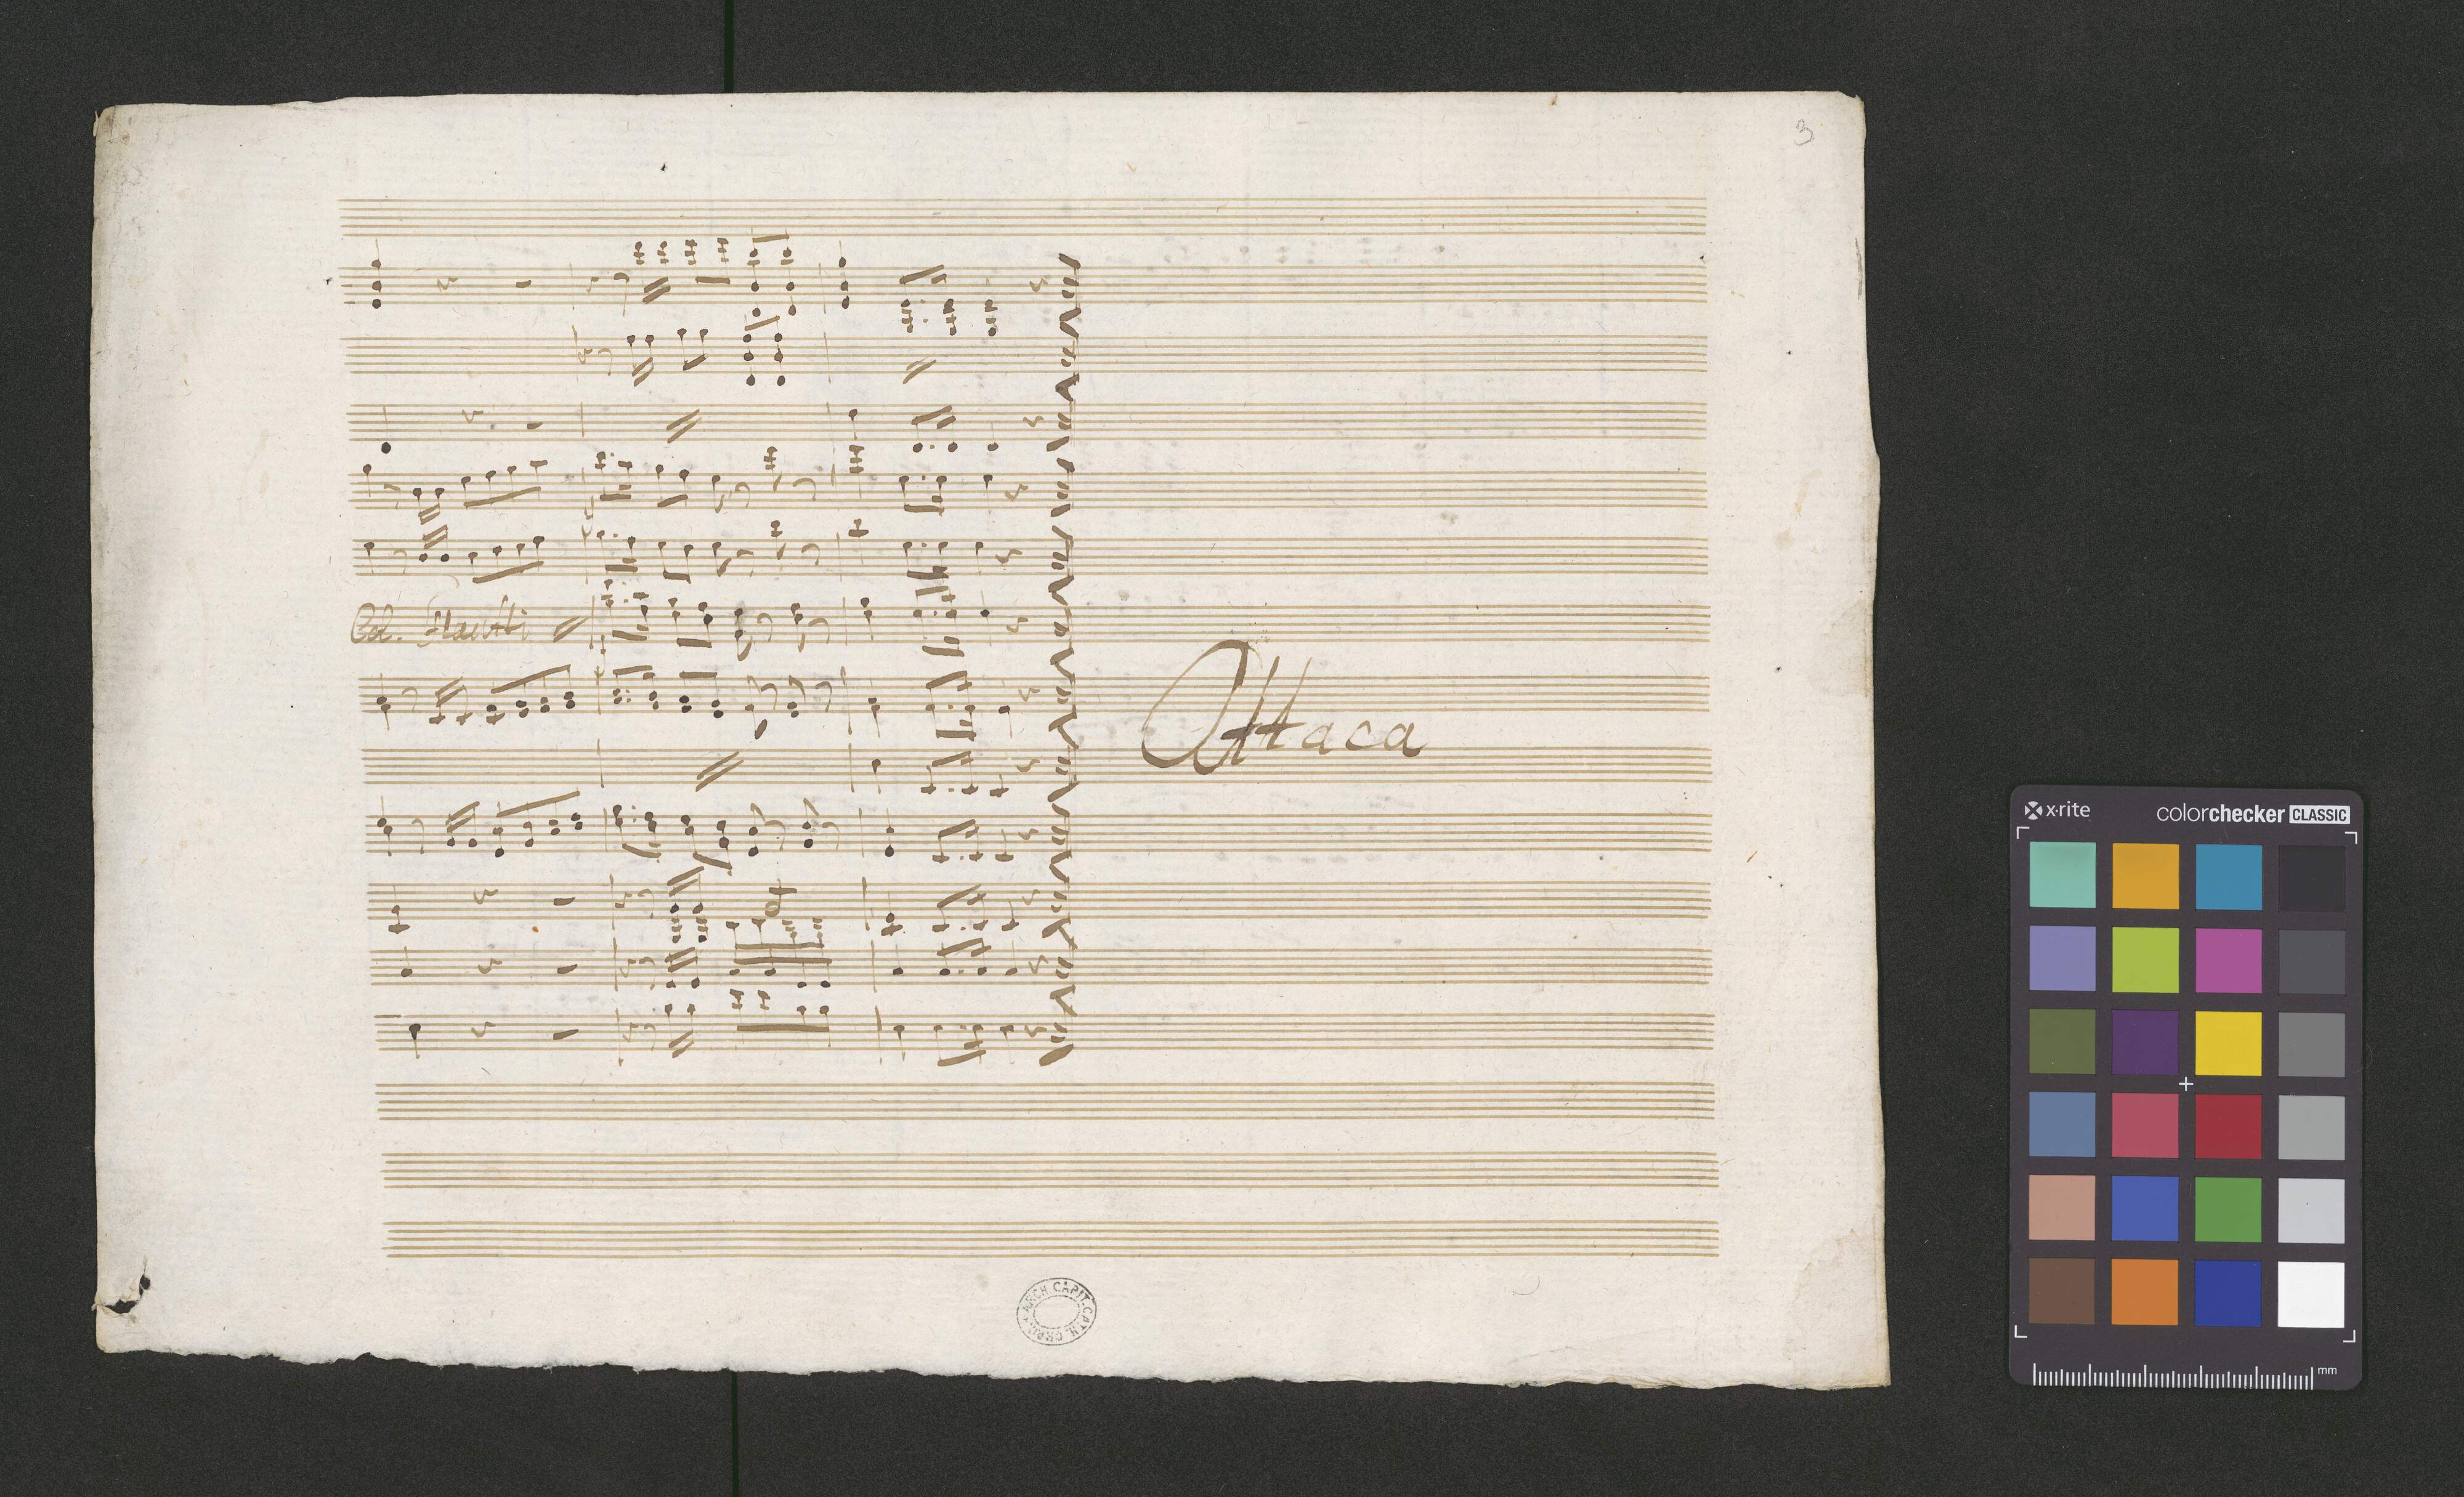 3
Col. Flautti
Attaca
ARCH CAPIT. CATH.
x·rite colorchecker CLASSIC
mm